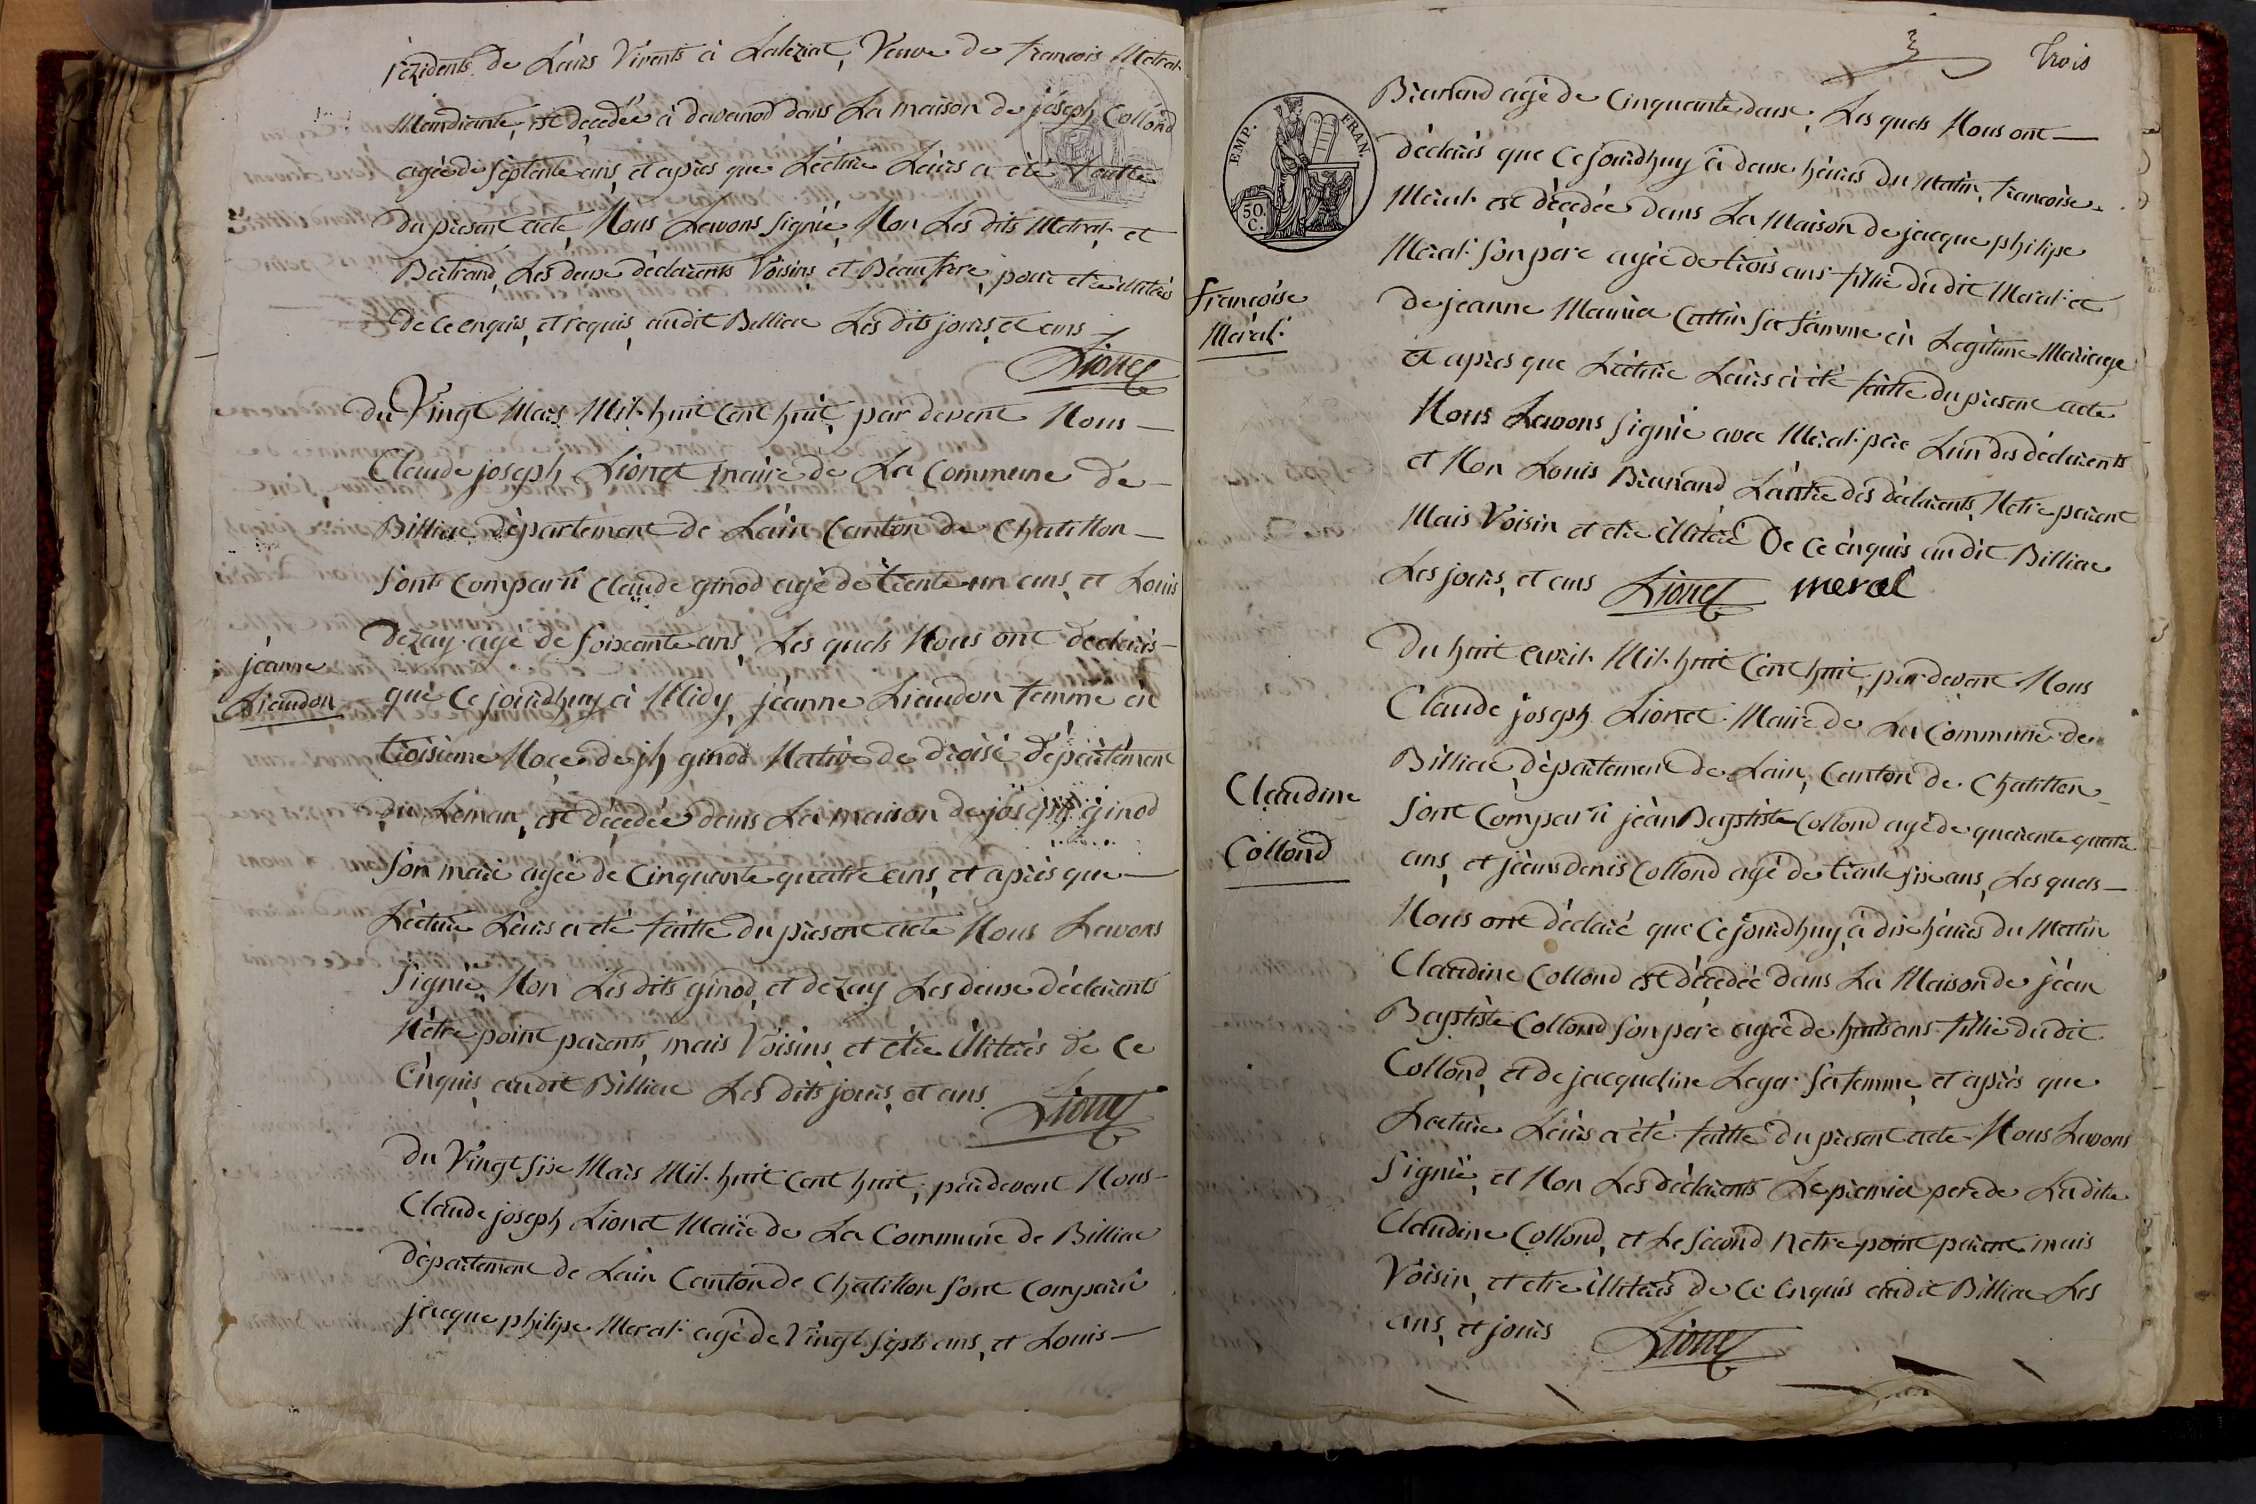 rézidents de Leurs Vivents à Laleziat, Veuve de francois Metral
Mandiante, est décédée à davanod dans La maison de joseph Collond
agée de septente ans, et après que Lecture Leurs a été faitte
du present acte Nous Lavons signié, Non Les dits Metral et
Bertrand, Les deux déclarents Voisins et Beaufrere, pour etre illiteres
de ce enquis, et requis, audit Billiat Les dits jours et ans
Lionet
du Vingt Mars Mil huit Cent huit, par devent Nous
Claude joseph Lionet maire de La Commune de
Billiat département de Lain Canton de Chatillon
sont Comparu Claude ginod agé de trente un ans, et Louis
dezay agé de soixante ans, Les quels Nous ont déclarés
jeanne
Liaudon
que Ce jourdhuy à Midy, jeanne Liaudon femme en
troisieme Noce de jh ginod Native de droisi département
du Léman, est décédée dans La maison de joseph ginod
son mari agée de Cinquante quatre ans, et après que
Lecture Leurs a été faitte du present acte Nous Lavons
signié, Non Les dits ginod, et dezay Les deux déclarents
Nêtre point parents, mais Voisins, et etre illiterés de Ce
Enquis, audit Billiat Les dits jours, et ans
Lionet
du Vingt six Mars Mil huit Cent huit, pardevent Nous
Claude joseph Lionet Maire de La Commune de Billiat
département de Lain Canton de Chatillon sont Comparu
jacque philipe Meral agé de Vingt septs ans, et Louis
3 trois
EMP. FRAN.
50. C.
Brunand agé de Cinquante deux, Les quels Nous ont
déclarés que Ce jourdhuy à deux heures du Matin, francoise
Méral est décédée dans La Maison de jacque philipe
Méral son père agée de trois ans fillie du dit Meral et
francoise
Méral
de jeanne Mauria Cattin sa famme en Legitime Mariage
et apres que Lecture Leurs à été faitte du present acte
Nous Lavons signié avec Méral père Lun des déclarents
et Non Louis Brunand Lautre des déclarents, Netre parent
Mais Voisin et etre illiteré De Ce enquis audit Billiat
Les jours, et ans Lionet meral
Du huit avril Mil huit Cent huit, par devent Nous
Claude joseph Lionet Maire de La Commune de
Billiat département de Lain, Canton de Chatillon
Claudine
Collond
sont Comparu jean Baptiste Collond agé de quarente quatre
ans, et jean denis Collond agé de trente six ans, Les quels
Nous ont déclaré que Ce jourdhuy, à dix heures du Matin
Claudine Collond est décédée dans La Maison de jean
Baptiste Collond son père agée de huits ans fillie du dit
Collond, et de jacqueline Leger sa femme, et après que
Lecture Leurs a été faitte du present acte Nous Lavons
signié, et Non Les déclarents Le premier pere de Ladite
Claudine Collond, et Le second Netre point parent mais
Voisin, et etre illiterés de Ce Enquis audit Billiat Les
ans, et jours Lionet